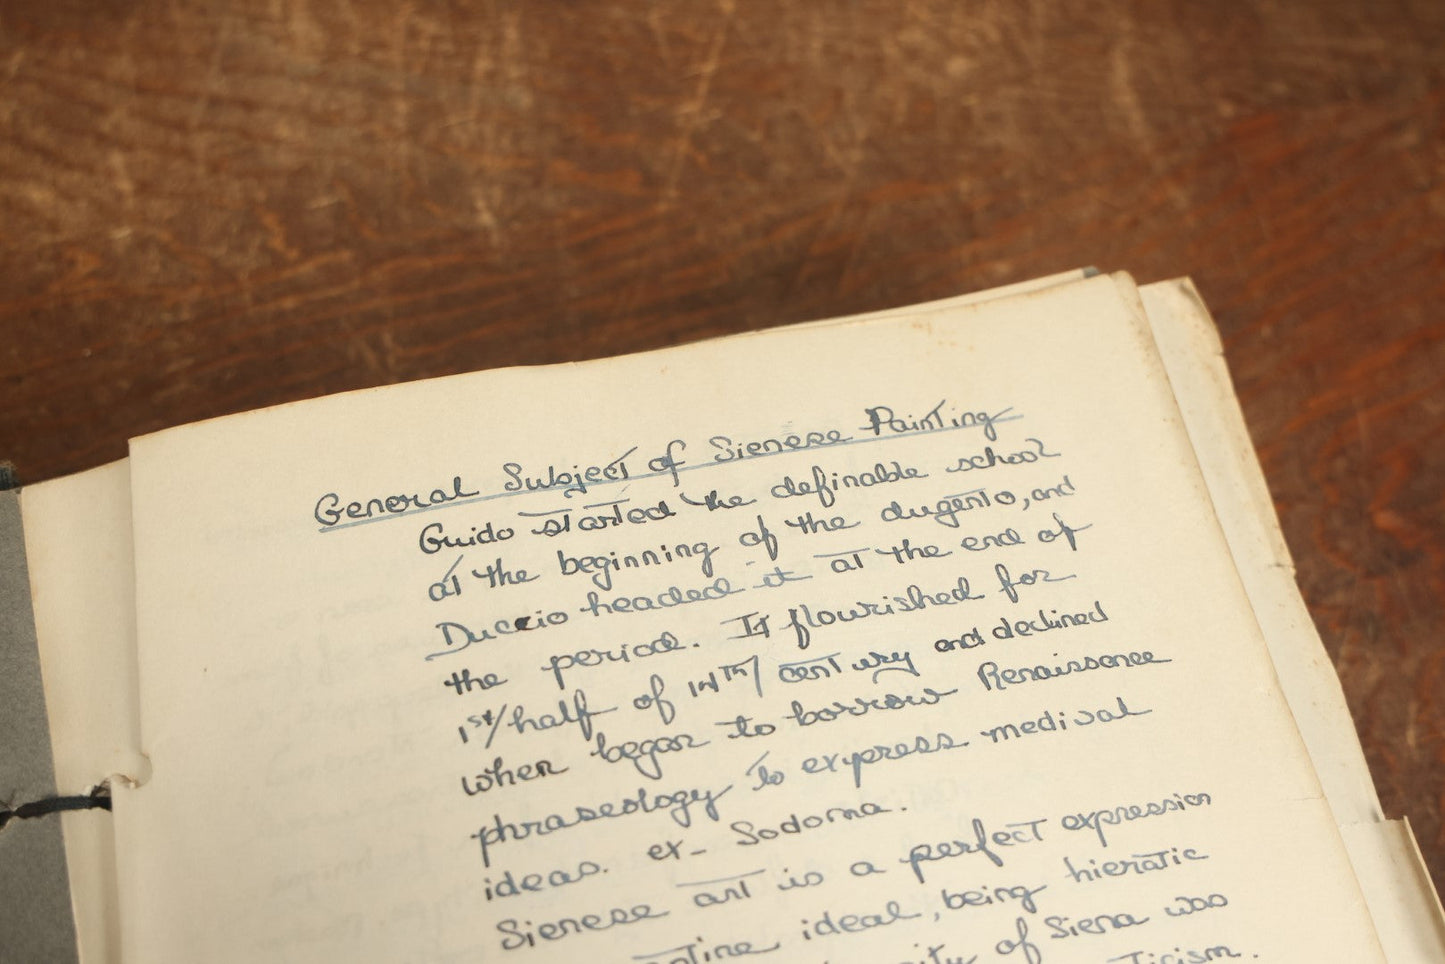 General Subject of Sienese Painting
Guido started the definable school
at the beginning of the dugento, and
Duccio headed it at the end of
the period. It flourished for
1st/half of 14th/century and declined
when began to borrow Renaissance
phraseology to express medival
ideas. ex- Sodoma.
Sienese art is a perfect expression
ideal, being hieratic
of Siena was